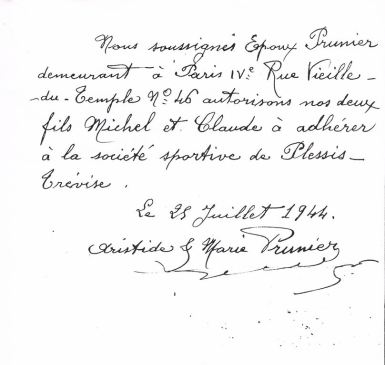 Nous soussignés Epoux Prunier
demeurant à Paris IVe Rue Vieille-
-du-Temple No 46 autorisons nos deux
fils Michel et Claude à adhérer
à la société sportive de Plessis-
Trévise.
Le 25 Juillet 1944.
Aristide & Marie Prunier